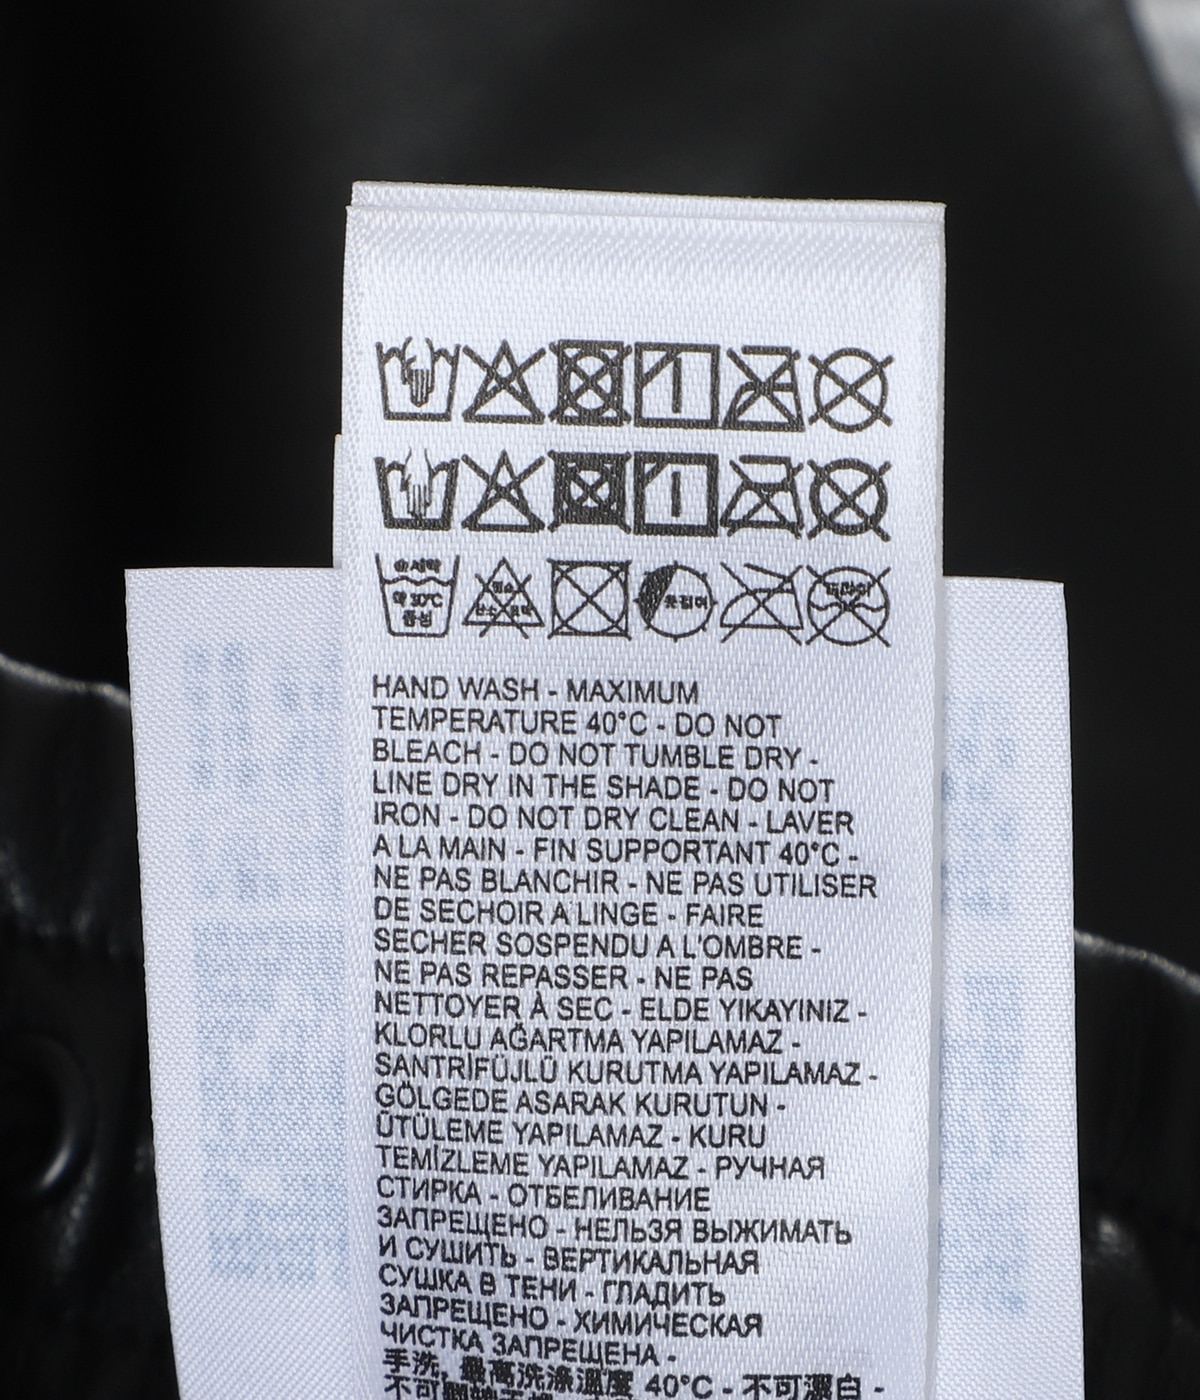 손세탁
약 30°C
중성
염소
산소 표백
옷걸이
드라이
HAND WASH - MAXIMUM
TEMPERATURE 40°C - DO NOT
BLEACH - DO NOT TUMBLE DRY -
LINE DRY IN THE SHADE - DO NOT
IRON - DO NOT DRY CLEAN - LAVER
A LA MAIN - FIN SUPPORTANT 40°C -
NE PAS BLANCHIR - NE PAS UTILISER
DE SECHOIR A LINGE - FAIRE
SECHER SOSPENDU A L'OMBRE -
NE PAS REPASSER - NE PAS
NETTOYER À SEC - ELDE YIKAYINIZ -
KLORLU AĞARTMA YAPILAMAZ -
SANTRİFÜJLÜ KURUTMA YAPILAMAZ -
GÖLGEDE ASARAK KURUTUN -
ÜTÜLEME YAPILAMAZ - KURU
TEMİZLEME YAPILAMAZ - РУЧНАЯ
СТИРКА - ОТБЕЛИВАНИЕ
ЗАПРЕЩЕНО - НЕЛЬЗЯ ВЫЖИМАТЬ
И СУШИТЬ - ВЕРТИКАЛЬНАЯ
СУШКА В ТЕНИ - ГЛАДИТЬ
ЗАПРЕЩЕНО - ХИМИЧЕСКАЯ
ЧИСТКА ЗАПРЕЩЕНА -
手洗, 最高洗滌溫度 40°C - 不可漂白 -
不可